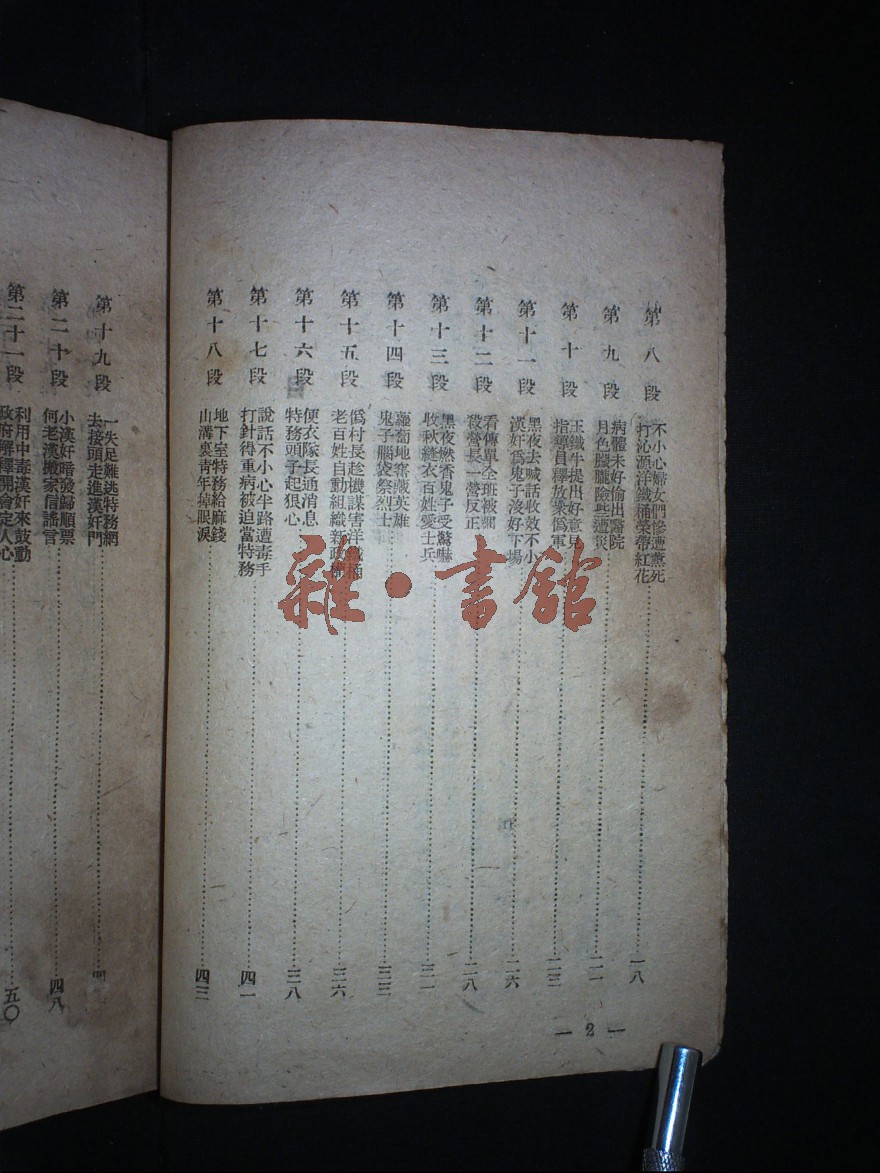 第八段
不小心婦女們慘遭薰死
打沁源洋鐵桶榮帶紅花
一八
第九段
病體未好偷出醫院
月色朦朧險些遭災
二一
第十段
王鐵牛提出好意見
指導員釋放衆僞軍
二三
第十一段
黑夜去喊話收效不小
漢奸爲鬼子沒好下場
二六
第十二段
看傳單全班被綑
殺營長一營反正
二八
第十三段
黑夜燃香鬼子受驚嚇
收秋縫衣百姓愛士兵
三一
第十四段
蘿蔔地窖藏英雄
鬼子腦袋祭烈士
三三
第十五段
僞村長趁機謀害洋鐵桶
老百姓自動組織新政權
三六
第十六段
便衣隊長通消息
特務頭子起狠心
三八
第十七段
說話不小心半路遭毒手
打針得重病被迫當特務
四一
第十八段
地下室特務給麻錢
山溝裏靑年掉眼淚
四三
— 2 —
第十九段
一失足難逃特務網
去接頭走進漢奸門
第二十段
小漢奸暗發歸順票
何老漢搬家信謠言
四八
第二十一段
利用中毒漢奸來鼓動
政府解釋開會定人心
五〇
雜·書館